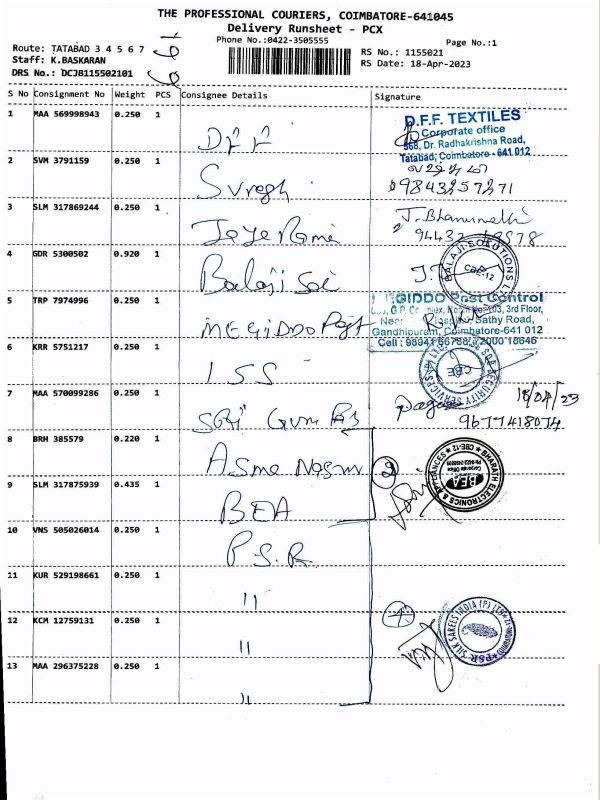 THE PROFESSIONAL COURIERS, COIMBATORE-641045
Delivery Runsheet - PCX
Phone No.:0422-3505555
Page No.:1
Route: TATABAD 3 4 5 6 7
RS No.: 1155021
Staff: K.BASKARAN
RS Date: 18-Apr-2023
DRS No.: DCJB115502101
S No Consignment No Weight PCS Consignee Details Signature
1 MAA 569998943 0.250 1
D.F.F. TEXTILES
Corporate office
568, Dr. Radhakrishna Road,
Tatabad, Coimbatore - 641 012
DFF
2 SVM 3791159 0.250 1
Suresh
3 SLM 317869244 0.250 1
4 GDR 5300502 0.920 1
BALAJI SOLUTIONS
CBE-12
Balaji
5 TRP 7974996 0.250 1
MEGIDDO Pest
MEGIDDO Pest Control
3rd Floor,
Sathy Road,
Gandhipuram, Coimbatore-641 012
6 KRR 5751217 0.250 1
ISS
SECURITY SERVICES
CBE
7 MAA 570099286 0.250 1
18/04/23
9677418074
8 BRH 385579 0.220 1
BHARATH ELECTRONICS & APPLIANCES
CBE-12
BEA
Corporate Office
9 SLM 317875939 0.435 1
BEA
2
10 VNS 505026014 0.250 1
P.S.R
11 KUR 529198661 0.250 1
"
12 KCM 12759131 0.250 1
"
PSR SILK SAREES INDIA (P) LTD
13 MAA 296375228 0.250 1
"